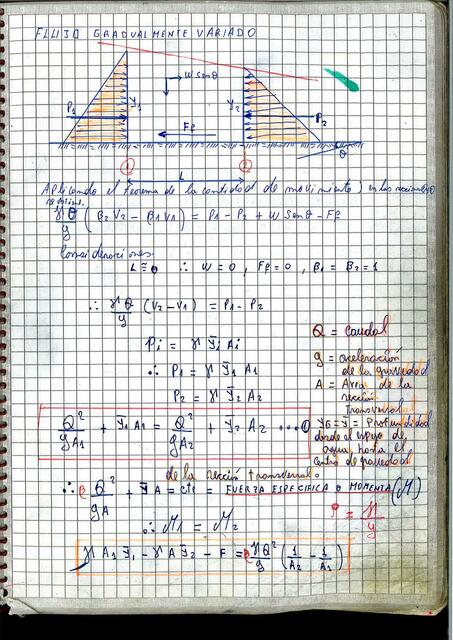 FLUJO GRADUALMENTE VARIADO
W Senθ
P1
y1
y2
P2
Ff
θ
1
2
L
Aplicando el Teorema de la cantidad de movimiento en las secciones
γQ/g (β2 V2 - β1 V1) = P1 - P2 + W Senθ - Ff
Consideraciones:
L ≅ 0 ∴ W = 0 , Ff = 0 , β1 = β2 = 1
∴ γQ/g (V2 - V1) = P1 - P2
Pi = γ ȳi Ai
∴ P1 = γ ȳ1 A1
P2 = γ ȳ2 A2
Q²/gA1 + ȳ1 A1 = Q²/gA2 + ȳ2 A2 ...①
Q = caudal
g = aceleración
de la gravedad
A = Area de la
sección
Transversal
yG = ȳ = Profundidad
desde el espejo de
agua, hasta el
centro de gravedad
de la sección transversal.
∴ β Q²/gA + ȳ A = cte = FUERZA ESPECIFICA o MOMENTA (M)
∴ M1 = M2
ρ = γ/g
γ A1 ȳ1 - γ A ȳ2 - F = β γQ²/g (1/A2 - 1/A1)